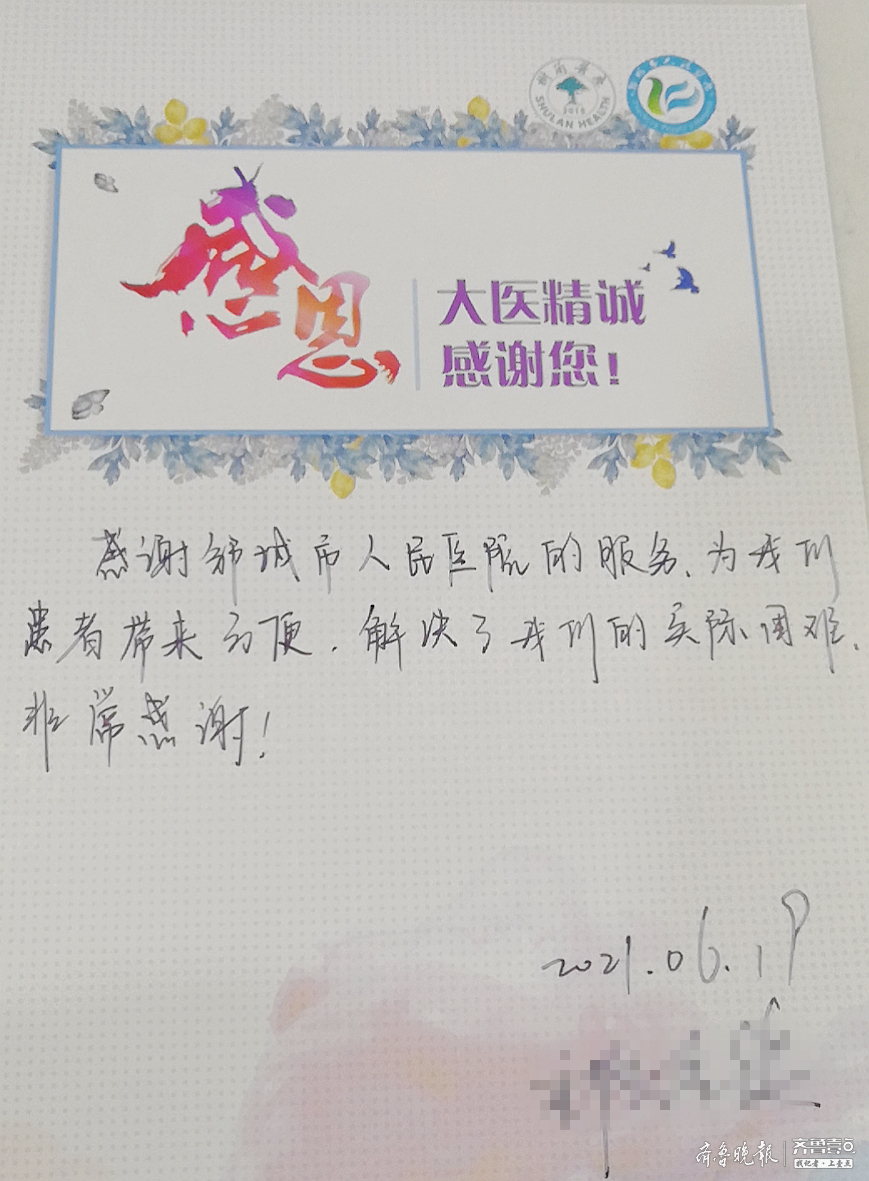 树兰医疗
SHULAN HEALTH
2015
感恩
大医精诚
感谢您!
感谢邹城市人民医院的服务、为我们
患者带来方便.解决了我们的实际困难、
非常感谢!
2021.06.19
齐鲁晚报
齐鲁壹点
我记者·上壹点